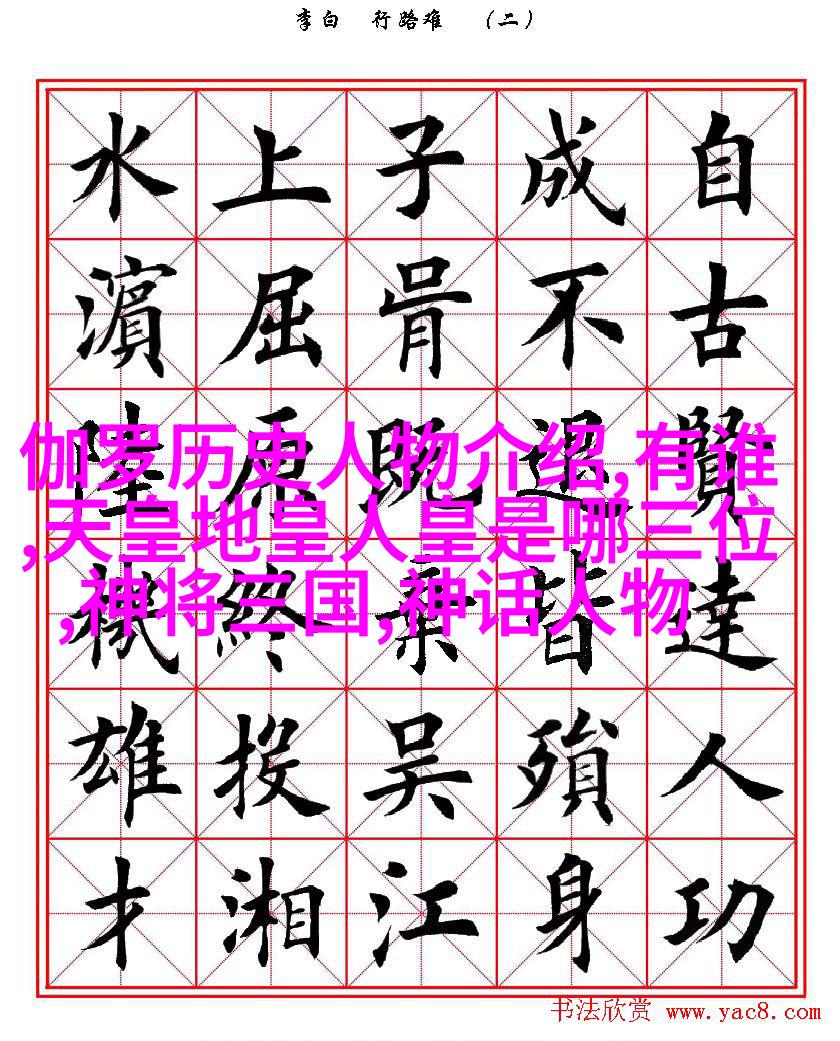 李白 行路难 （二）
自古賢達人功
成不退皆殞身
子胥既棄吳江
上屈原終投湘
水濱陸機雄才
伽罗历史人物介绍,有谁
,天皇地皇人皇是哪三位
,神将三国,神话人物
书法欣赏 www.yac8.com